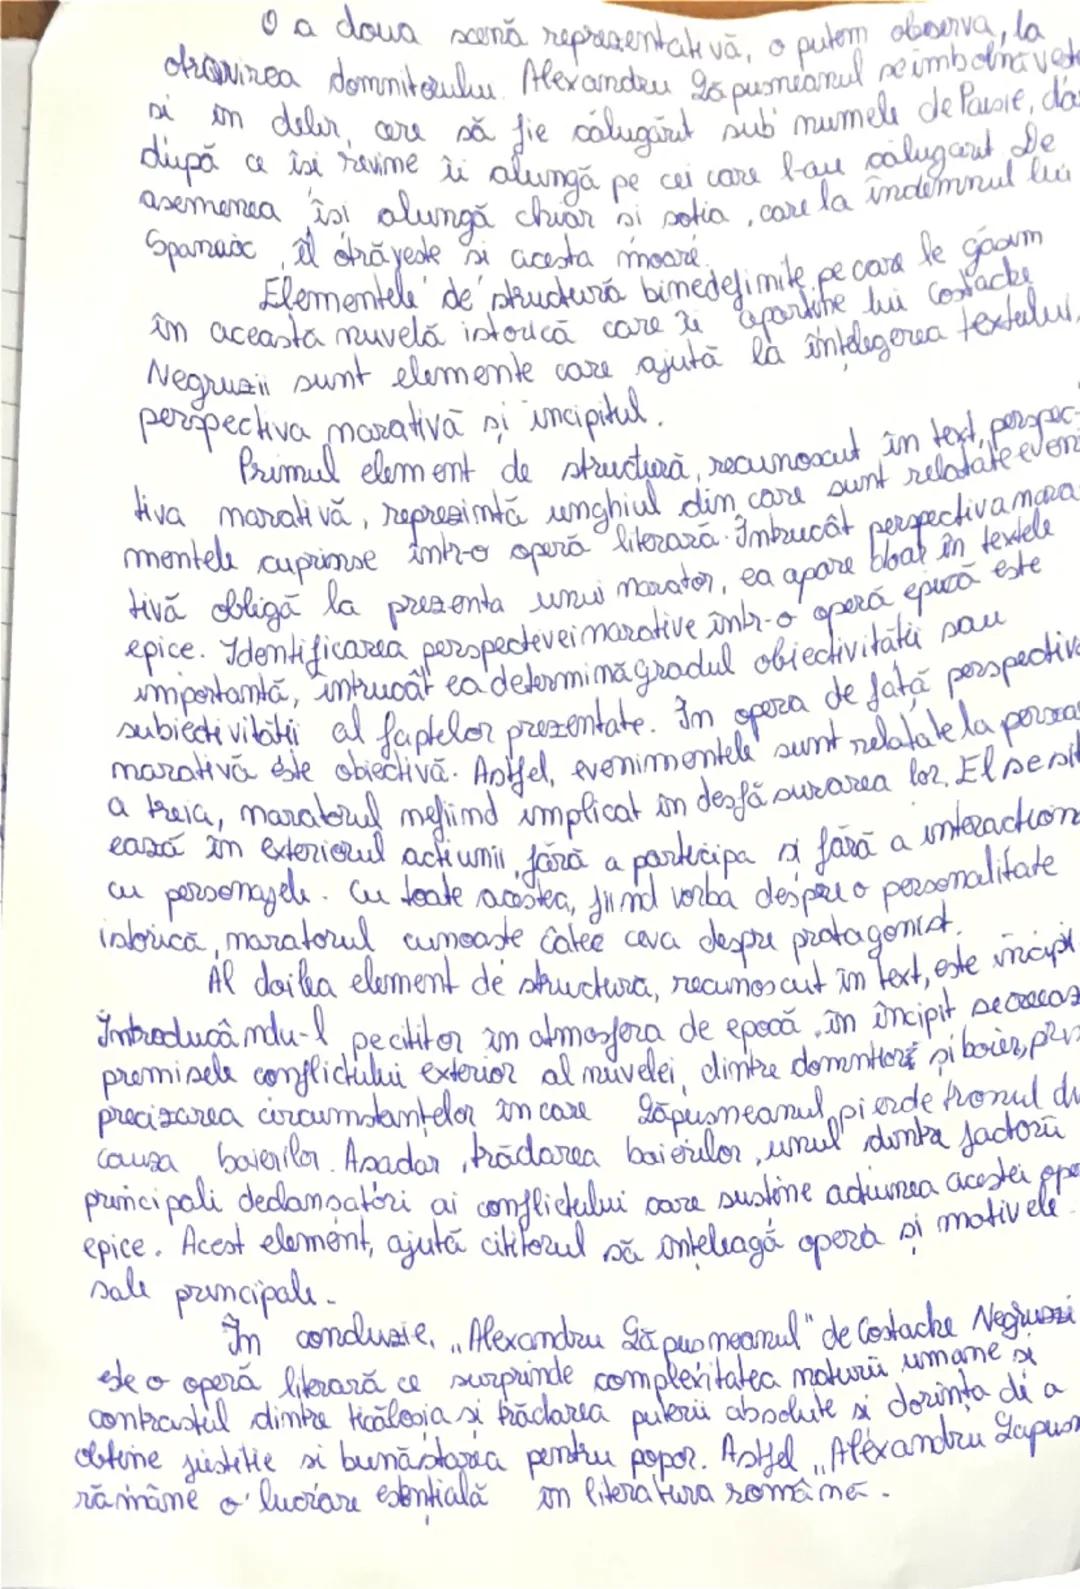 O a doua scenă reprezentativă, o putem observa, la
otrăvirea domnitorului. Alexandru Lăpusneanul se imbolnăveste
si in delir, cere să fie călugărit sub numele de Paisie, dar
după ce isi revine ii alungă pe cei care l-au călugarit. De
asemenea isi alungă chiar si sotia, care la îndemnul lui
Spancioc, îl otrăveste si acesta moare.
Elementele de structură binedefinite pe care le găsim
în această nuvelă istorică care ii apartine lui Costache
Negruzii sunt elemente care ajută la intelegerea textului,
perspectiva narativă și incipitul.
Primul element de structură, recunoscut în text, perspec-
tiva narativă, reprezintă unghiul din care sunt relatate eveni-
mentele cuprinse într-o operă literară. Întrucât perspectiva nara-
tivă obligă la prezenta unui narator, ea apare doar în textele
epice. Identificarea perspectivei narative într-o operă epică este
importantă, întrucât ea determină gradul obiectivitătii sau
subiectivitătii al faptelor prezentate. În opera de fată perspectiva
narativă este obiectivă. Astfel, evenimentele sunt relatate la persoa
a treia, naratorul nefiind implicat in desfă surarea lor. El se sit
ează în exteriorul actiunii, fără a participa si fără a interaction
cu personajele. Cu toate acestea, fiind vorba despre o personalitate
istorică, naratorul cunoaste câte ceva despre protagonist.
Al doilea element de structura, recunoscut în text, este incipit
Introducându-l pe cititor in atmosfera de epocă, in incipit se creeaz
premisele conflictului exterior al nuvelei, dintre domnitor si boieri, prin
precizarea circumstantelor in care Lăpusneanul pierde tronul din
cauza boierilor. Asadar, trădarea boierilor, unul dintre factorii
principali declansatori ai conflictului care sustine actiunea acestei ope
epice. Acest element, ajută cititorul să inteleagă opera si motivele
sale principale.
În concluzie, „Alexandru Lăpusneanul" de Costache Negruzzi
este o operă literară ce surprinde complexitatea naturii umane si
contrastul dintre ticălosia si trădarea puterii absolute si dorinta de a
obtine justitie si bunăstarea pentru popor. Astfel „Alexandru Lapusn
rămâne o lucrare esentială in literatura română.